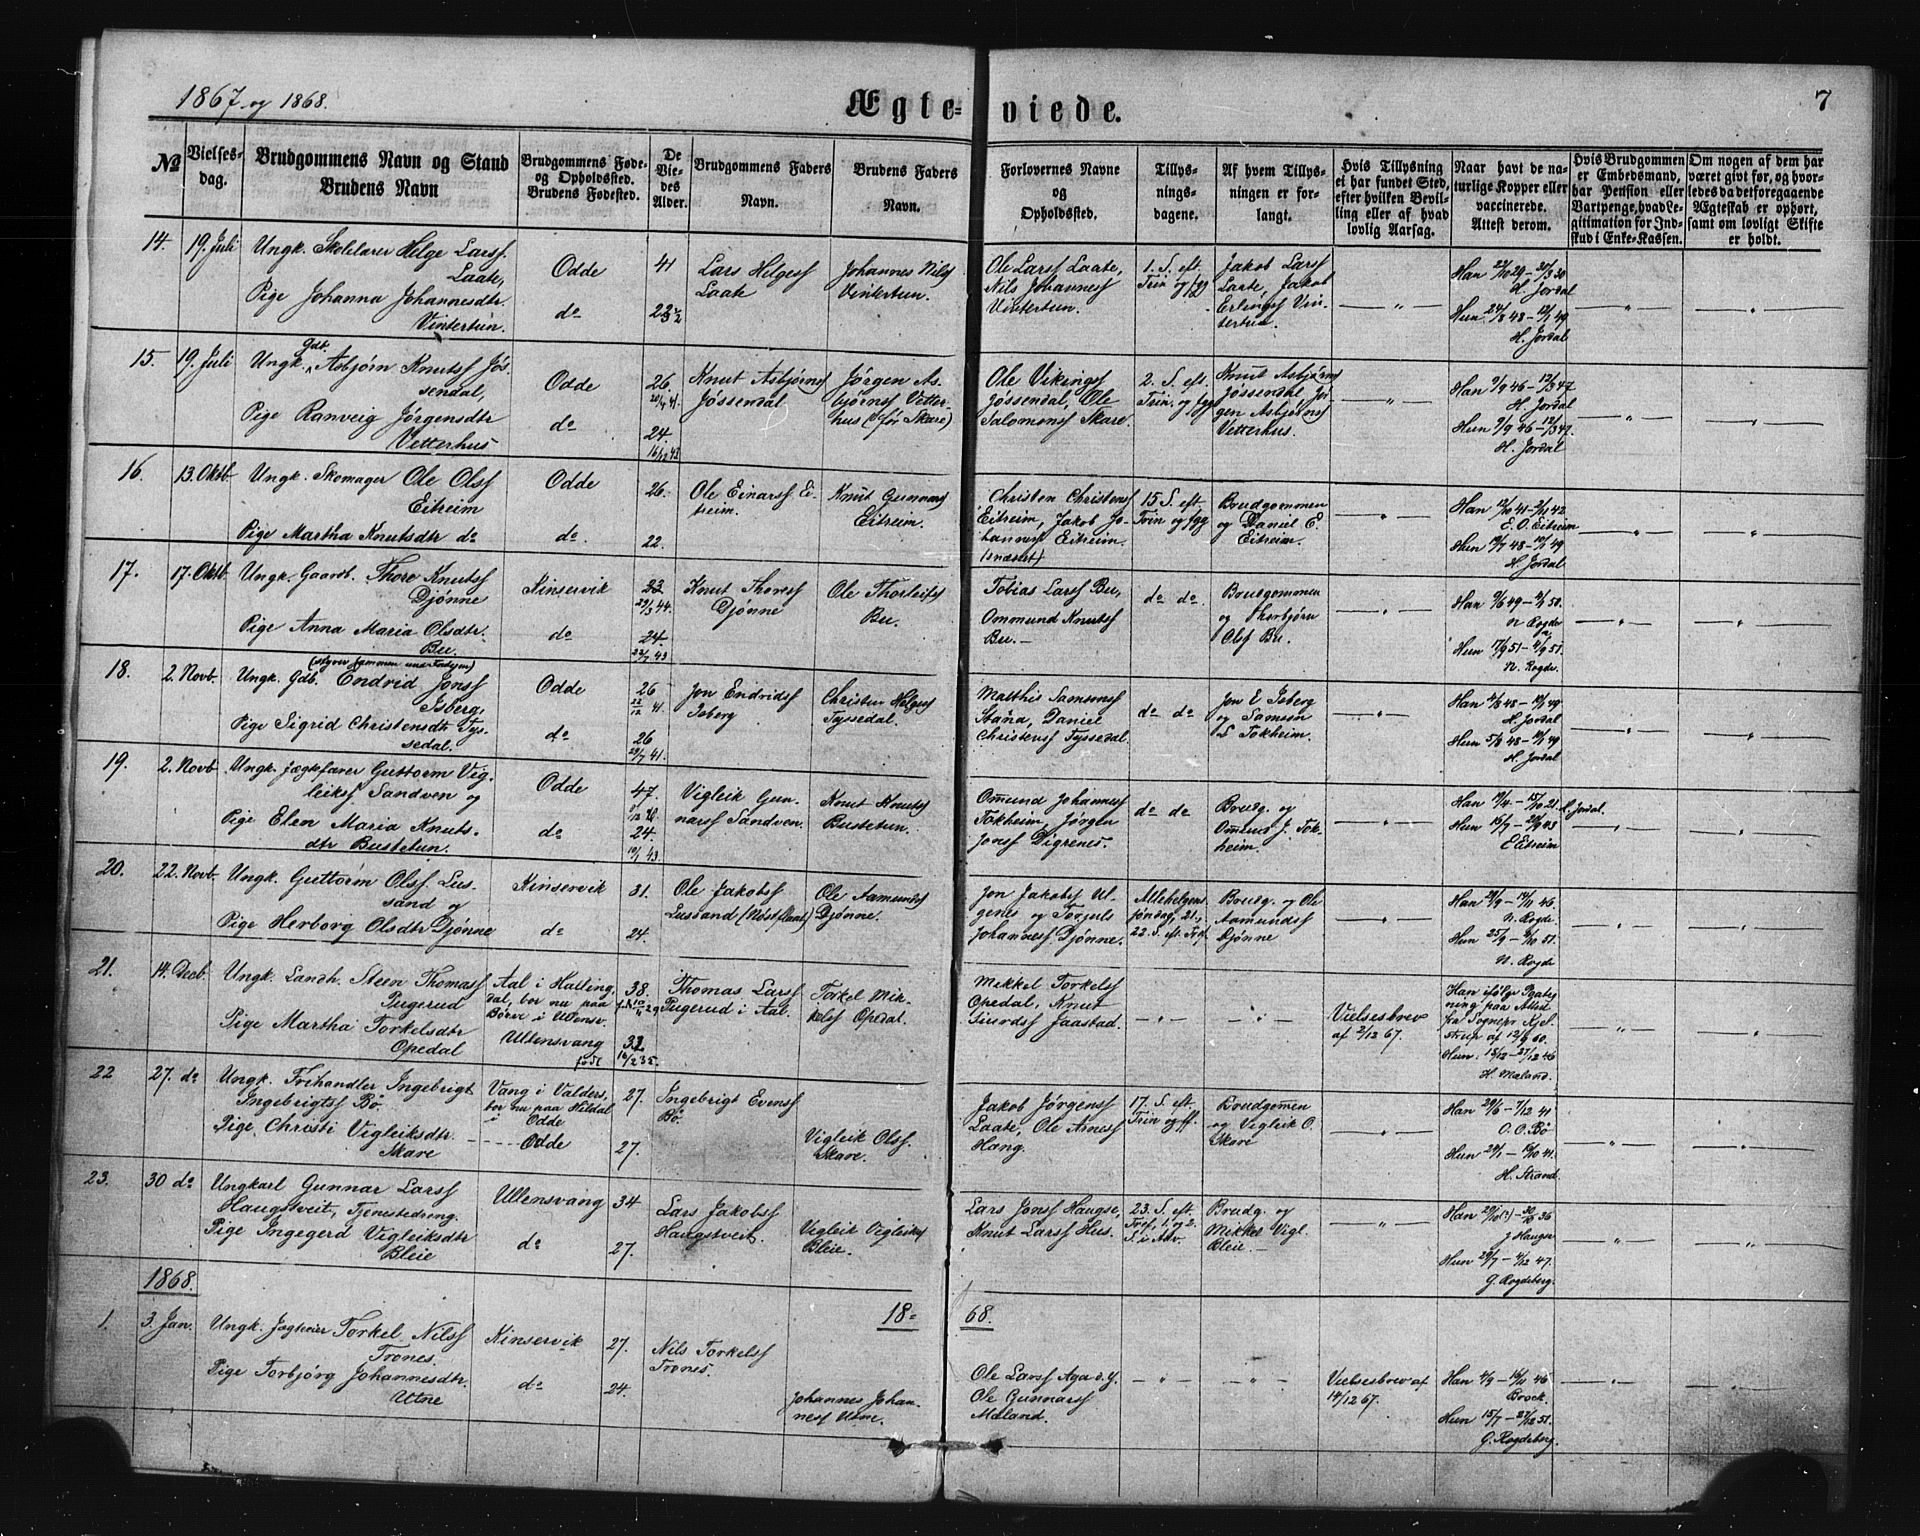 1867 og 1868.
Ægte-
viede.
7
No
Vielses-
dag.
Brudgommens Navn og Stand
Brudens Navn
Brudgommens Føde-
og Opholdssted.
Brudens Fødested.
De
Vie-
des
Alder.
Brudgommens Faders
Navn.
Brudens Faders
Navn.
Forlovernes Navne
og
Opholdssted.
Tillys-
nings-
dagene.
Af hvem Tillys-
ningen er for-
langt.
Hvis Tillysning
ei har fundet Sted,
efter hvilken Bevil-
ling eller af hvad
lovlig Aarsag.
Naar havt de na-
turlige Kopper eller
vaccinerede.
Attest derom.
Hvis Brudgommen
er Embedsmand,
har Pension eller
Vartpenge, hvad Le-
gitimation for Ind-
skud i Enke-Kassen.
Om nogen af dem har
været givt før, og hvor-
ledes da det foregaaende
Ægteskab er ophørt,
samt om lovligt Skifte
er holdt.
14. 19. Juli
Ungk. Skolelærer Helge Larss.
Laate,
Pige Johanna Johannesdtr.
Vintertun.
Odde
do
41
22½
Lars Helgess
Laate
Johannes Nilss
Vintertun.
Ole Larss Laate,
Nils Johanness
Vintertun.
1. S. eft.
Trin og fgg
Jakob Larss
Laate, Jakob
Erlingss Vin-
tertun.
Han 22/10 29 - 31/3 30
H. Jordal
Hun 24/8 48 - 12/1 49
H. Jordal
15. 19. Juli
Ungk. Gdb. Asbjørn Knutss Jøs-
sendal,
Pige Ranveig Jørgensdtr
Vetterhus
Odde
do
26.
24.
16/12 42
Knut Asbjørns
Jøssendal
Jørgen As-
bjørnss Vetter-
hus (før Skare)
Ole Vikingss
Jøssendal, Ole
Salomonss Skare.
2. S. eft.
Trin. og fgg
Knut Asbjørns
Jøssendal Jør-
gen Asbjørnss
Vetterhus.
Han 9/9 46 - 12/3 47
H. Jordal
Hun 9/9 46 - 12/3 47.
H. Jordal
16. 13. Oktb.
Ungk. Skomager Ole Olss
Eitreim
Pige Martha Knutsdtr do
Odde
do.
26.
22.
Ole Einarss Ei-
treim.
Knut Gunnars
Eitreim.
Christen Christenss
Eitreim, Jakob Jo-
hanness Eitreim.
15. S. eft.
Trin og fgg
Brudgommen
og Daniel E.
Eitreim.
Han 12/10 41 - 2/11 42
E. O. Eitreim
Hun 19/7 48 - 12/1 49
H. Jordal
17. 17. Oktb.
Ungk. Gaardb. Thore Knutss
Djønne
Pige Anna Maria Olsdtr.
Bu.
Kinservik
do.
23
29/3 44.
24.
23/7 43
Knut Thoress
Djønne
Ole Thorleifs
Bu.
Tobias Larss Bu,
Ommund Knutss
Bu. -
do do.
Brudgommen
og Thorbjørn
Olss Bu.
Han 9/6 49 - 4/1 50.
N. Rogde
Hun 17/9 51 - 4/9 51.
N. Rogde.
18. 2. Novb.
Ungk. Gdb. Endrid Jonss
Isberg,
Pige Sigrid Christensdtr Tys-
sedal.
Odde
do.
26
22/12 41.
26
29/7 41.
Jon Endridss
Isberg
Christen Helges
Tyssedal.
Matthis Samsonss
Stana, Daniel
Christenss Tyssedal.
do do
Jon E Isberg
og Samson
S Tokheim.
Han 4/8 48 - 12/1 49
H. Jordal
Hun 5/8 48 - 12/1 49
H. Jordal
19. 2. Novb
Ungk. Jægtefører Guttorm Vig-
leikss Sandven og
Pige Elen Maria Knuts-
dtr Bustetun.
Odde
do.
47
24.
10/1 43
Vigleik Gun-
narss Sandven.
Knut Knuts
Bustetun.
Omund Johannes
Tokheim, Jørgen
Jonss Digrenes.
do do
Brudg. og
Omund J. Tok-
heim.
Han 9/4 - 15/10 21. H. Jordal.
Hun 16/7 - 20/9 43
E Eitreim
20. 22. Novb.
Ungk. Guttorm Olss. Lus-
sand og
Pige Herborg Olsdtr Djønne
Kinservik
do.
31.
24.
Ole Jakobss
Lussand
Ole Aamunds
Djønne.
Jon Jakobss Ul-
genes og Torjuls
Johanness Djønne.
Allehelgens
søndag, 21.,
22. S. eft. Tref.
Brudg. og Ole
Aamundss
Djønne
Han 29/9 - 14/11 46.
N. Rogde
Hun 25/9 - 4/10 51.
N. Rogde
21. 14. Decb.
Ungk. Landh. Steen Thomass
Pugerud
Pige Martha Torkelsdtr
Opedal
Aal i Halling
dal, bor nu paa
Børve i Ullensv.
Ullensvang
født
38.
16/2 35.
Thomas Larss
Pugerud i Aal.
Torkel Mik-
kelss Opedal.
Mikkel Torkelss
Opedal, Knut
Siurdss Jaastad.
Vielsesbrev
af 2/12 67.
Han ifølge Pgateg-
ning paa Attest
fra Sognepr. Kjel-
strup af 12/9 60.
Hun. 15/12 - 27/12 46
H. Mæland.
22 27. do
Ungk. Frihandler Ingebrigt
Ingebrigtss Bø
Pige, Christi Vigleiksdtr.
Skare
Vang i Valders,
bor nu paa Hildal
i Odde
Odde
27.
27.
Ingebrigt Evenss
Bø.
Vigleik Olss.
Skare.
Jakob Jørgenss
Laate, Ole Arness
Haug.
17. S. eft.
Trin og ff.
Brudgomen
og Vigleik O.
Skare
Han 29/6 - 7/12 41
O. O. Bø
Hun 29/1 - 15/10 41.
H. Strand.
23. 30 do
Ungkarl Gunnar Larss
Haugstveit, Tjenestedreng.
Pige Ingegerd Vigleiksdtr
Bleie
Ullensvang
do.
34
27.
Lars Jakobss
Haugstveit
Vigleik Vigleiks
Bleie.
Lars Jonss Haugse,
Knut Larss Hus.
23. S. eft.
Tref., 1. og 2.
S. i Adv.
Brudg. og
Mikkel Vigl.
Bleie. -
Han 20/10 (?) - 30/10 36
J Haugse
Hun 29/7 - 4/12 47.
G. Rogdeberg.
1868.
18=
68.
1. 3. Jan.
Ungk. Jægteeier Torkel Nilss
Trones.
Pige Torbjørg Johannesdtr.
Utne
Kinservik
do.
27.
24.
Nils Torkelss
Trones.
Johannes Johan-
ness Utne.
Ole Larss Aga d. y.
Ole Gunnarss
Mæland.
Vielsesbrev af
14/12 67.
Han 4/9 - 14/11 46
Brock.
Hun 15/7 - 27/12 51.
G. Rogdeberg.